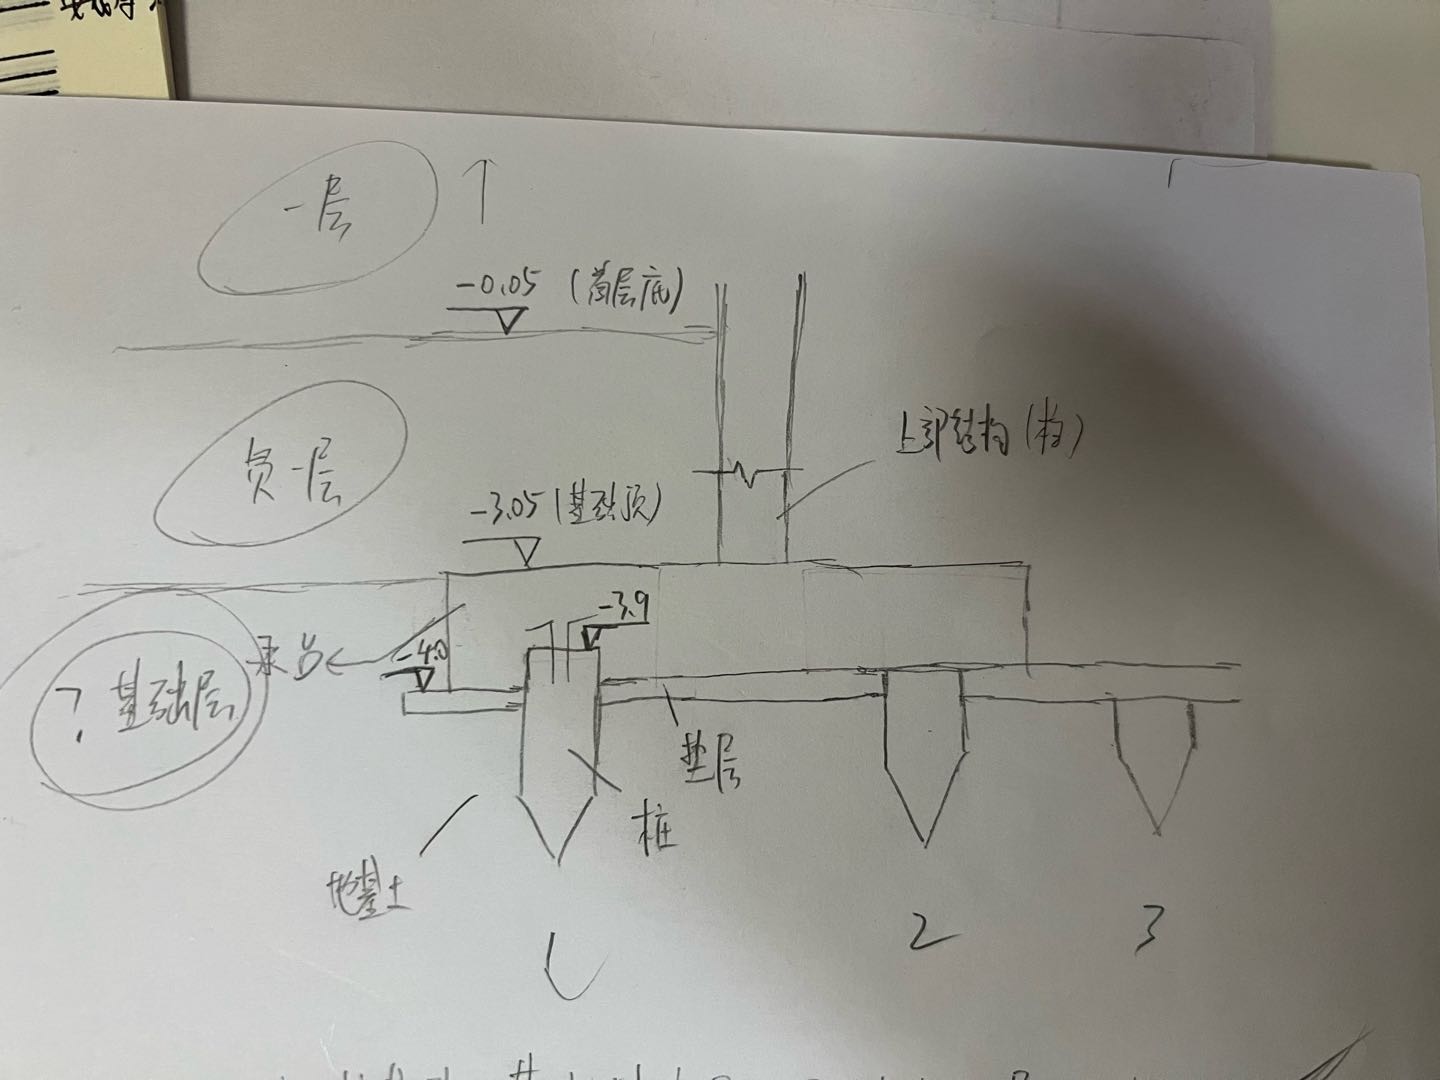 一层
-0.05 (首层底)
上部结构(柱)
负一层
-3.05(基础顶)
-3.9
承台
-4.0
? 基础层
垫层
桩
地基土
1
2
3